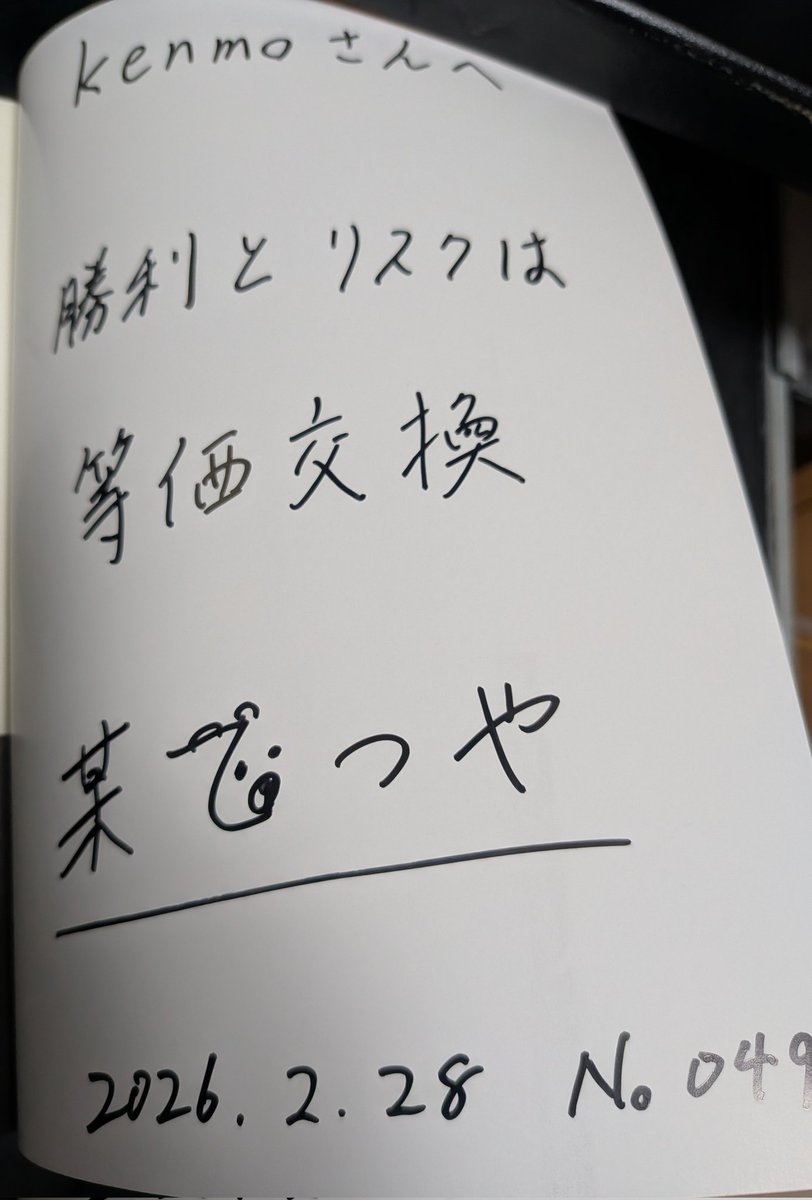 kenmoさんへ
勝利とリスクは
等価交換
某でつや
2026.2.28 No.049